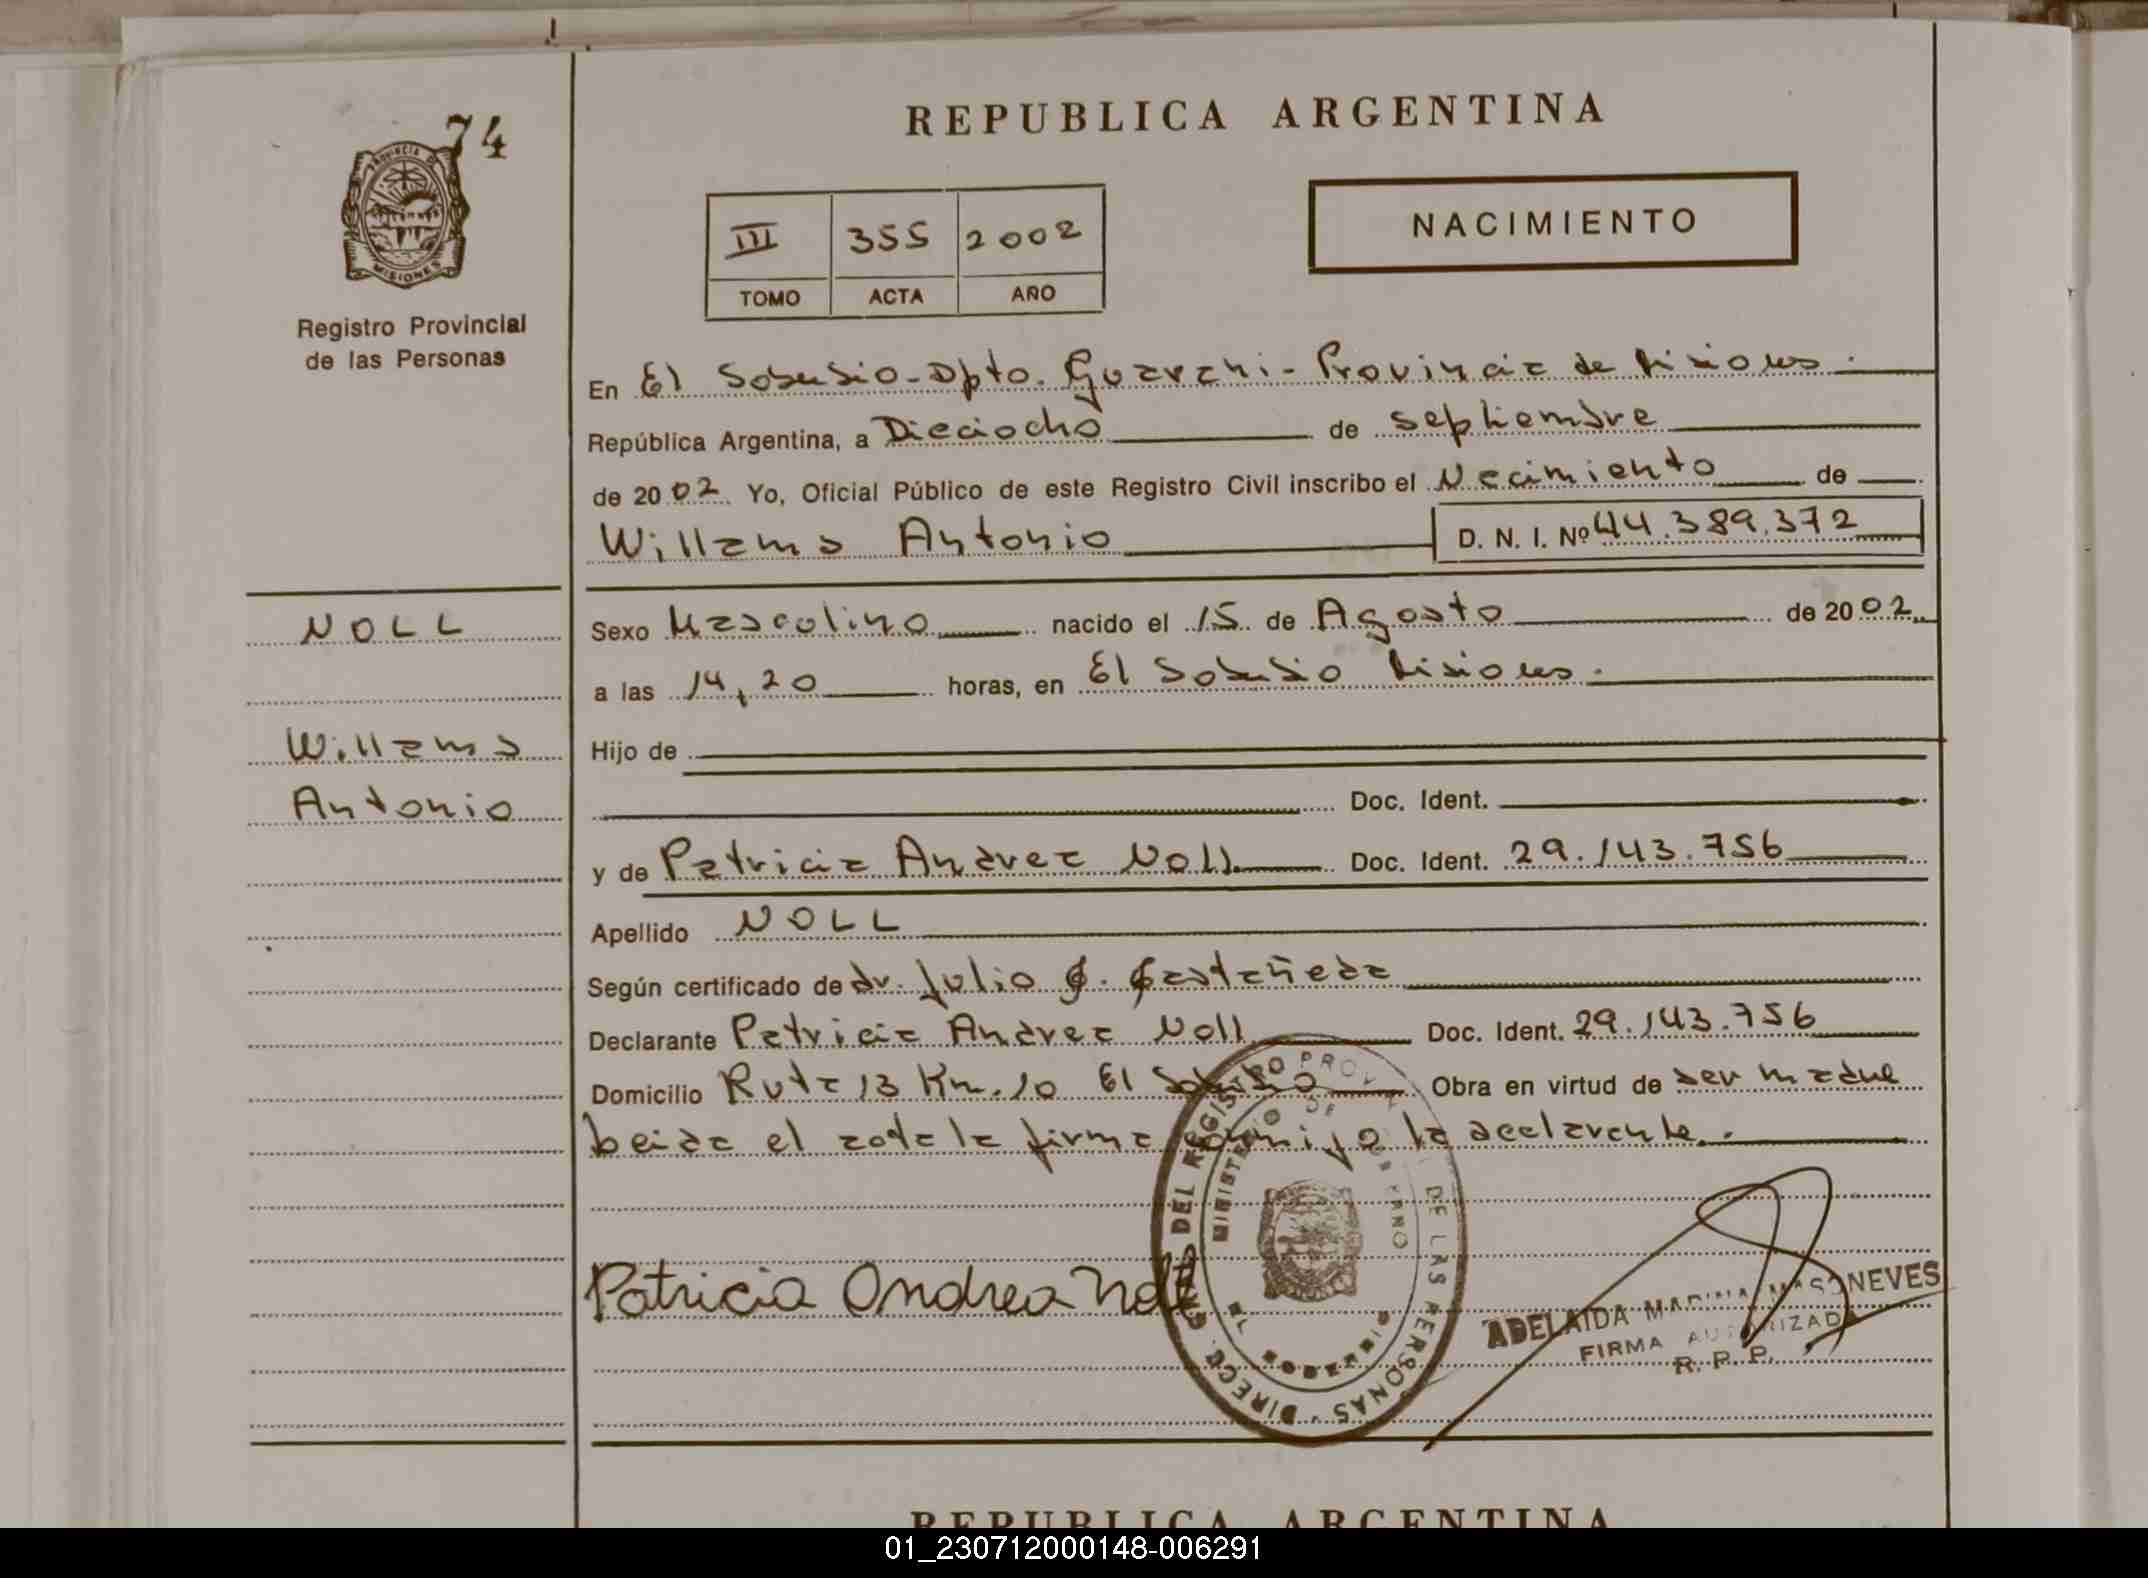 74
PROVINCIA DE
MISIONES
Registro Provincial
de las Personas
REPUBLICA ARGENTINA
III 355 2002
TOMO ACTA AÑO
NACIMIENTO
En El Soberbio - Dpto. Guarani - Provincia de Misiones.
República Argentina, a Dieciocho de septiembre
de 2002 Yo, Oficial Público de este Registro Civil inscribo el Nacimiento de
Willams Antonio D. N. I. Nº 44.389.372
NOLL
Willams
Antonio
Sexo Masculino nacido el 15 de Agosto de 2002
a las 14,20 horas, en El Soberbio Misiones.
Hijo de
Doc. Ident.
y de Patricia Andrea Noll Doc. Ident. 29.143.756
Apellido NOLL
Según certificado de dr. Julio G. Gastañeda
Declarante Patricia Andrea Noll Doc. Ident. 29.143.756
Domicilio Ruta 13 Km. 10 El Soberbio Obra en virtud de ser madre
Leida el acta la firma conmigo la declarante.
Patricia Andrea Noll
DIRECC. GRAL. DEL REGISTRO PROVINCIAL DE LAS PERSONAS
MINISTERIO DE GOBIERNO
ADELAIDA MARINA MASONEVES
FIRMA AUTORIZADA
R. P. P.
REPUBLICA ARGENTINA
01_230712000148-006291